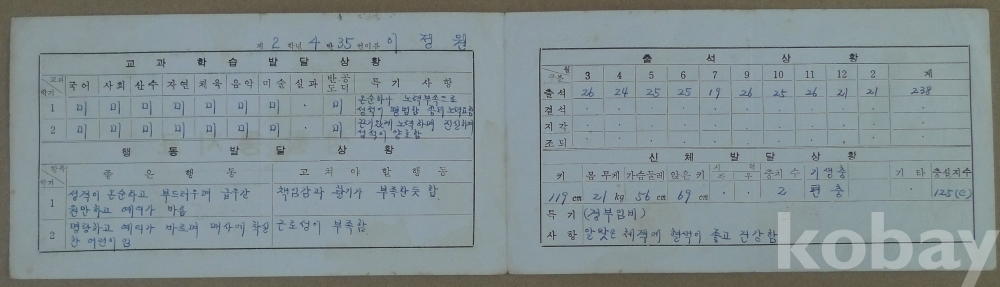 제 2 학년 4 반 35 번이름 이 정 원
교 과 학 습 발 달 상 황
교과 학기 국어 사회 산수 자연 체육 음악 미술 실과 반공도덕 특 기 사 항
1 미 미 미 미 미 미 미 · 미 온순하나 노력부족으로 성적이 평범함
2 미 미 미 미 미 미 미 · 미 끈기있게 노력하며 진실하며 성적이 양호함
행 동 발 달 상 황
학기 좋 은 행 동 고 쳐 야 할 행 동
1 성격이 온순하고 부드러우며 급우간 원만하고 예의가 바름 책임감과 활기가 부족한듯 함
2 명랑하고 예의가 바르며 매사에 확실한 어린이임 근로성이 부족함
출 석 상 황
구분 월 3 4 5 6 7 9 10 11 12 2 계
출석 26 24 25 25 19 26 25 26 21 21 238
결석 · · · · · · · · · · ·
지각 · · · · · · · · · · ·
조퇴 · · · · · · · · · · ·
신 체 발 달 상 황
키 몸무게 가슴둘레 앉은키 시력 좌 우 충치수 기생충 기 타 충실지수
119 cm 21 kg 56 cm 69 cm · · 2 편 충 · 125(C)
특 기 사 항 (정부입비)
알맞은 체격에 혈색이 좋고 건강함
kobay